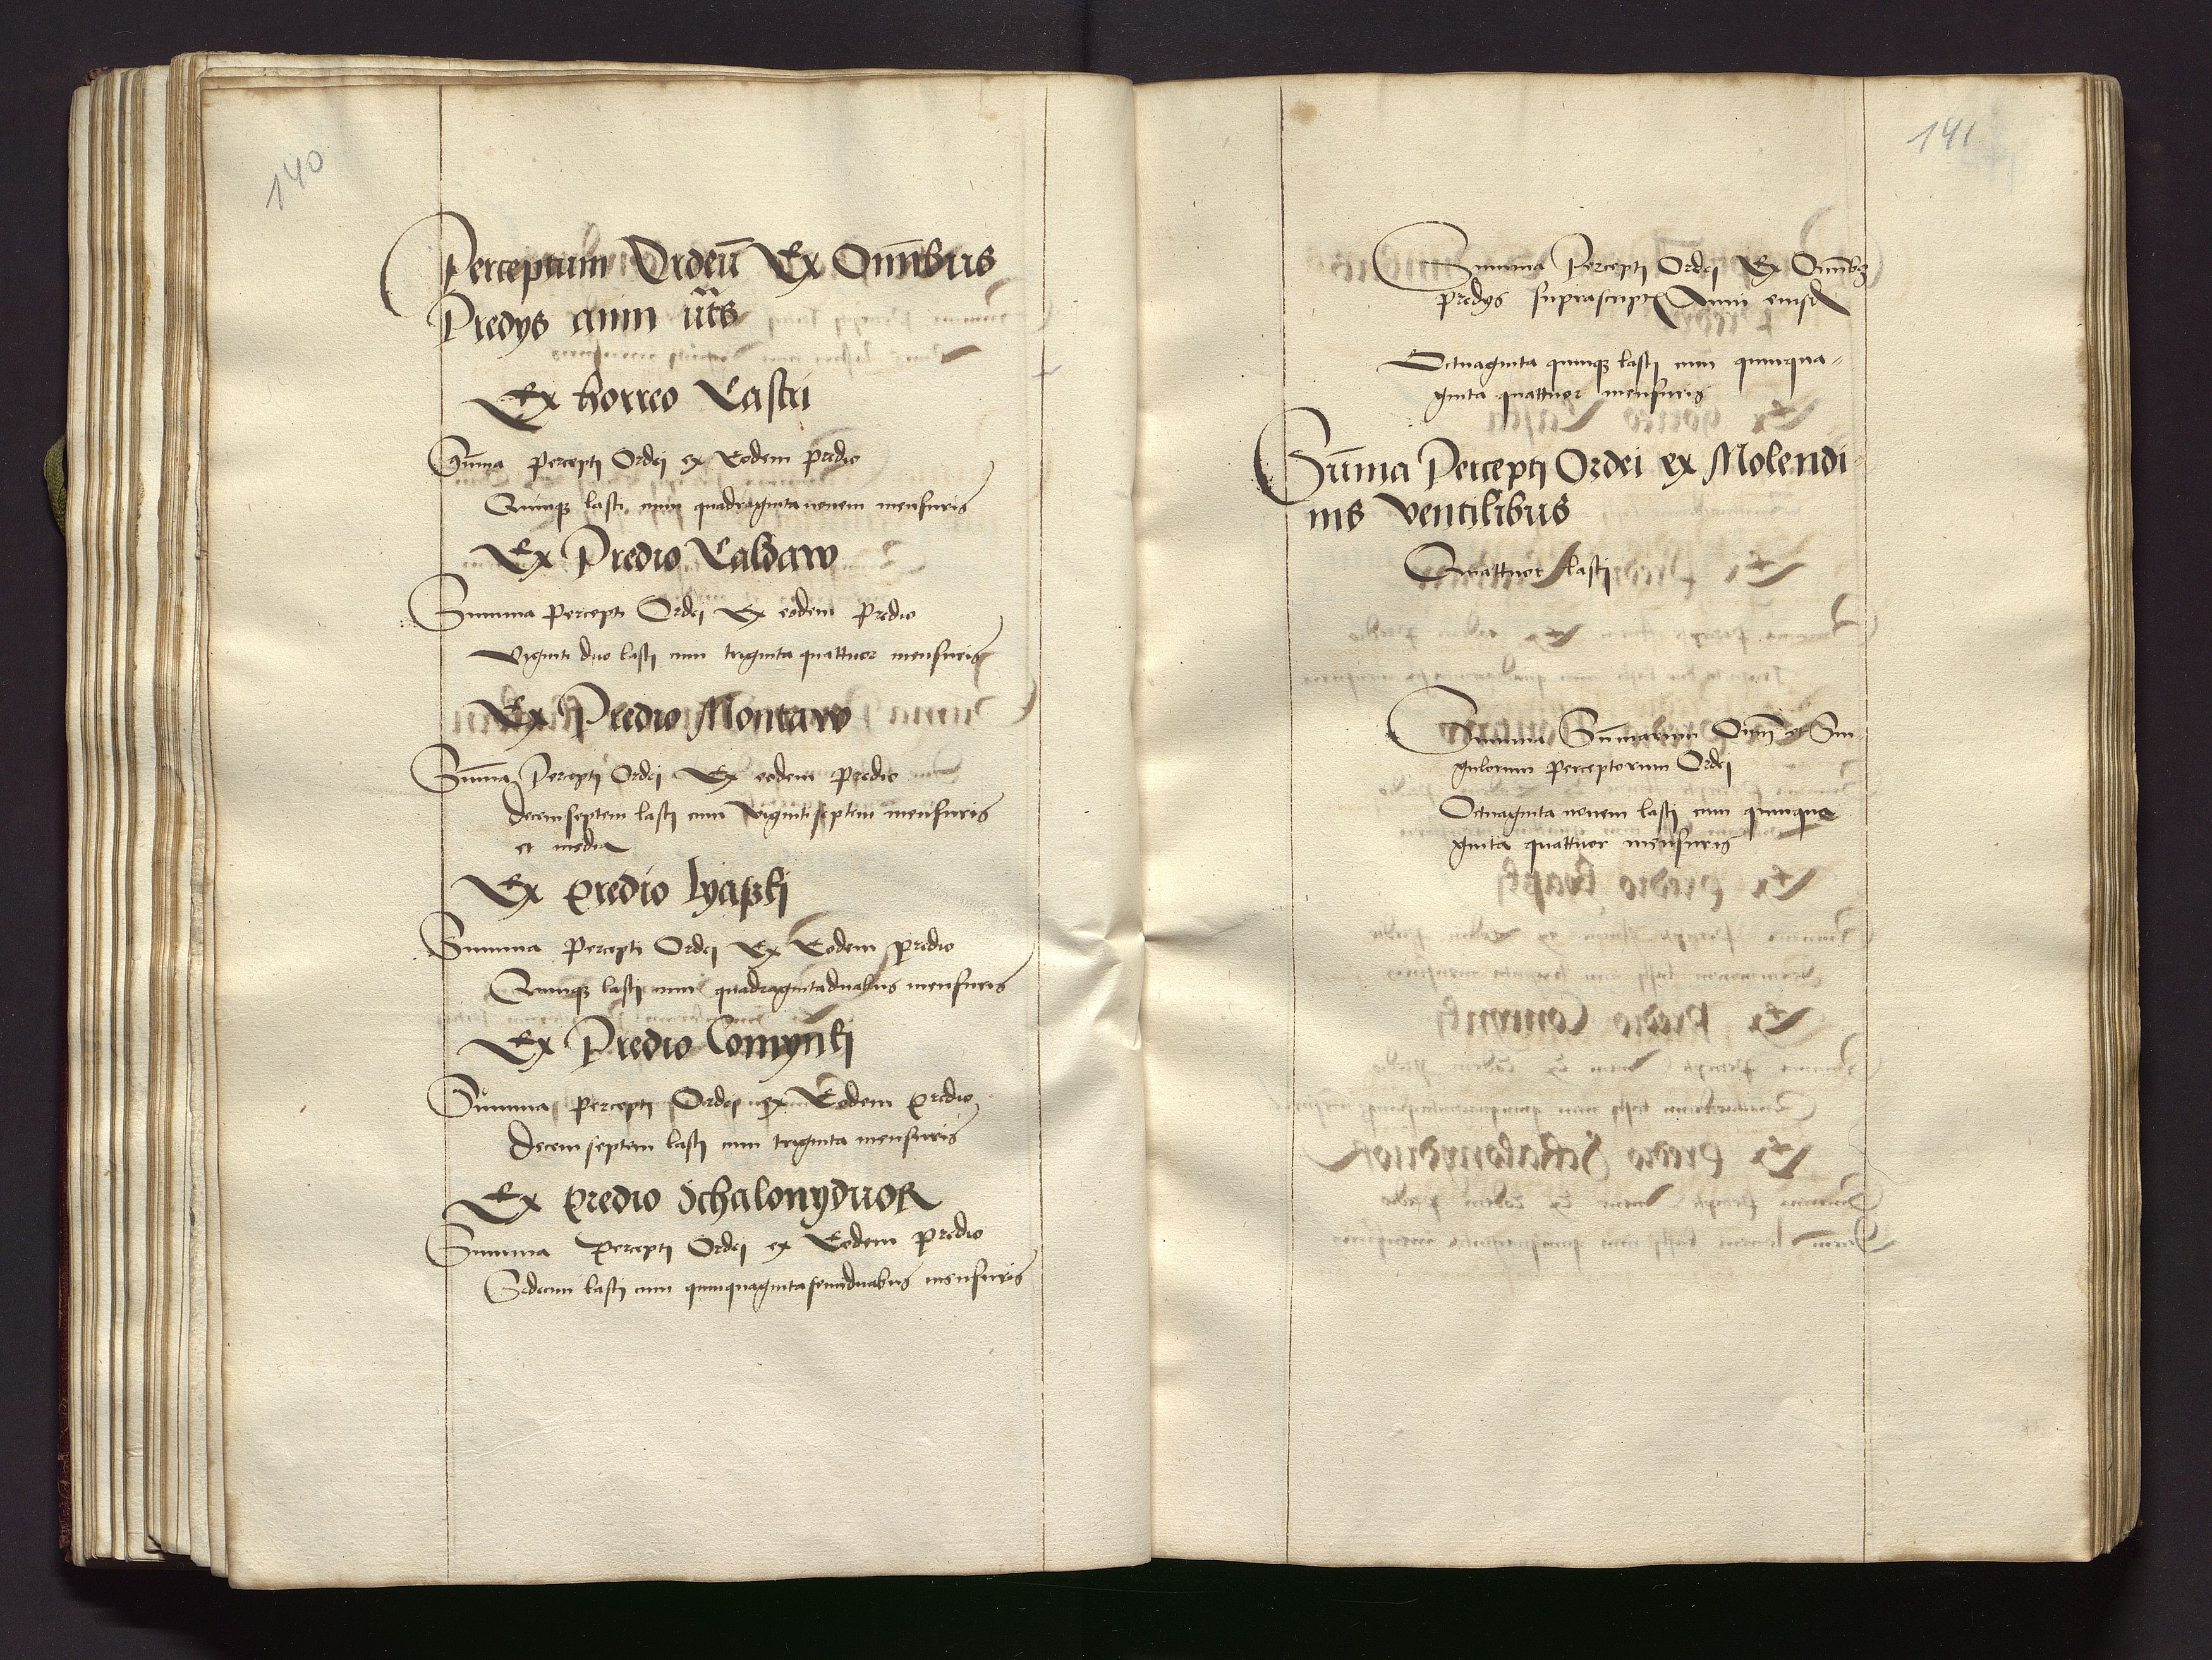 140
Perceptum Ordeū Ex Om̄ibus
Predys anni ut̄s
Ex horreo Castri
Sum̄a percepti Ordej ex Eodem predio
Quinqꝫ lasti cum quadragintanouem mensuris
Ex Predio Caldaw
Summa percepti Ordej Ex eodem predio
Viginti duo lastj cum triginta quattuor mensuris
Ex Predio Montaw
Sum̄a Percepti Ordej Ex eodem predio
decemseptem lastj cum vigintiseptem mensuris
et media
Ex predio lyaßkj
Summa percepti Ordej Ex Eodem predio
Quinqꝫ lastj cum quadragintaduabus mensuris
Ex Predio Comyn̄kj
Summa percepti Ordej ex Eodem predio
decemseptem lastj cum triginta mensuris
Ex predio Schalonyduor
Summa percepti Ordej ex Eodem predio
Sedecim lastj cum quinquaginta duabus mensuris
141
Summa Percepti Ordej Ex Om̄ibꝫ
predys suprascript Anni eiusd
Octuaginta quinqꝫ lastj cum quinqua-
ginta quattuor mensuris
Sum̄a Percepti Ordei ex Molendi
nis ventilibus
Quattuor lastj
Summa Sum̄arum Om̄i et Sin
gulorum perceptorum Ordej
Octuaginta nouem lastj cum quinqua
ginta quattuor mensuris